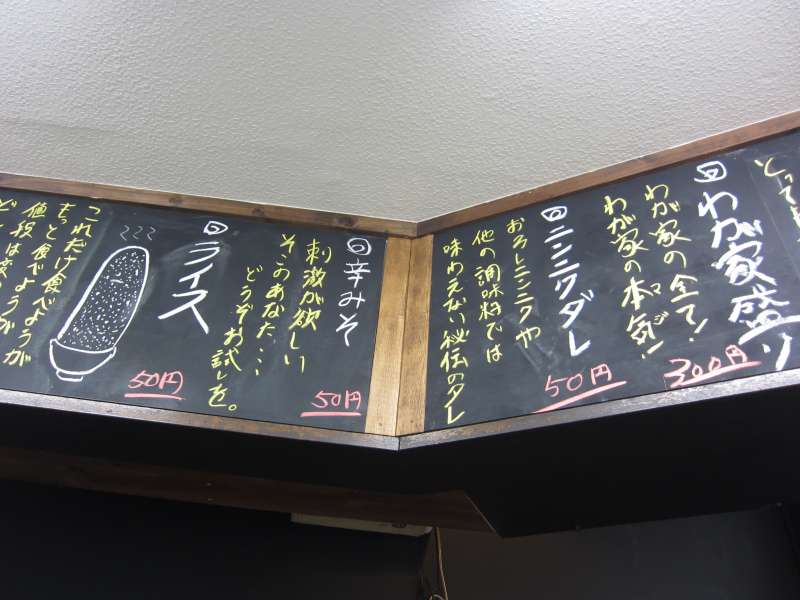 とって
わが家盛り
わが家の全て!
わが家の本気!
マジ
300円
ニンニクダレ
おろしニンニクや
他の調味料では
味わえない秘伝のタレ
50円
辛みそ
刺激が欲しい
そこのあなた・・・
どうぞお試しを。
50円
ライス
50円
これだけ食べようが
ちょっと食べようが
値段は変